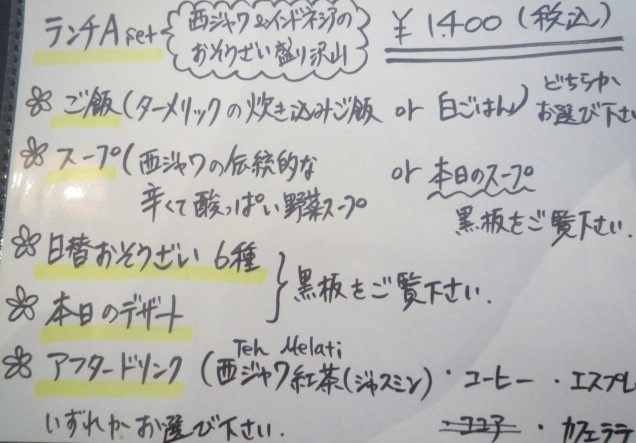 ランチA set 西ジャワ&インドネシアの
おそうざい盛り沢山 ¥1.400(税込)
ご飯(ターメリックの炊き込みご飯 or 白ごはん) どちらか
お選び下さい
スープ(西ジャワの伝統的な
辛くて酸っぱい野菜スープ or 本日のスープ
黒板をご覧下さい.
日替おそうざい 6種
本日のデザート } 黒板をご覧下さい.
Teh Melati
アフタードリンク (西ジャワ紅茶(ジャスミン)・コーヒー・エスプレ
いずれかお選び下さい. ココア・カフェラテ